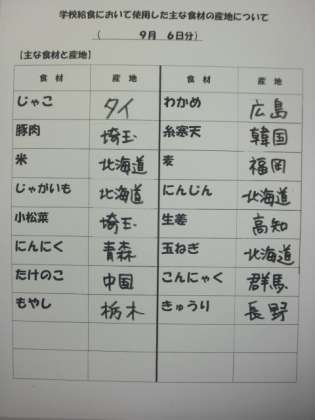 学校給食において使用した主な食材の産地について
( 9月 6日分)
【主な食材と産地】
食材 産地 食材 産地
じゃこ タイ わかめ 広島
豚肉 埼玉 糸寒天 韓国
米 北海道 麦 福岡
じゃがいも 北海道 にんじん 北海道
小松菜 埼玉 生姜 高知
にんにく 青森 玉ねぎ 北海道
たけのこ 中国 こんにゃく 群馬
もやし 栃木 きゅうり 長野